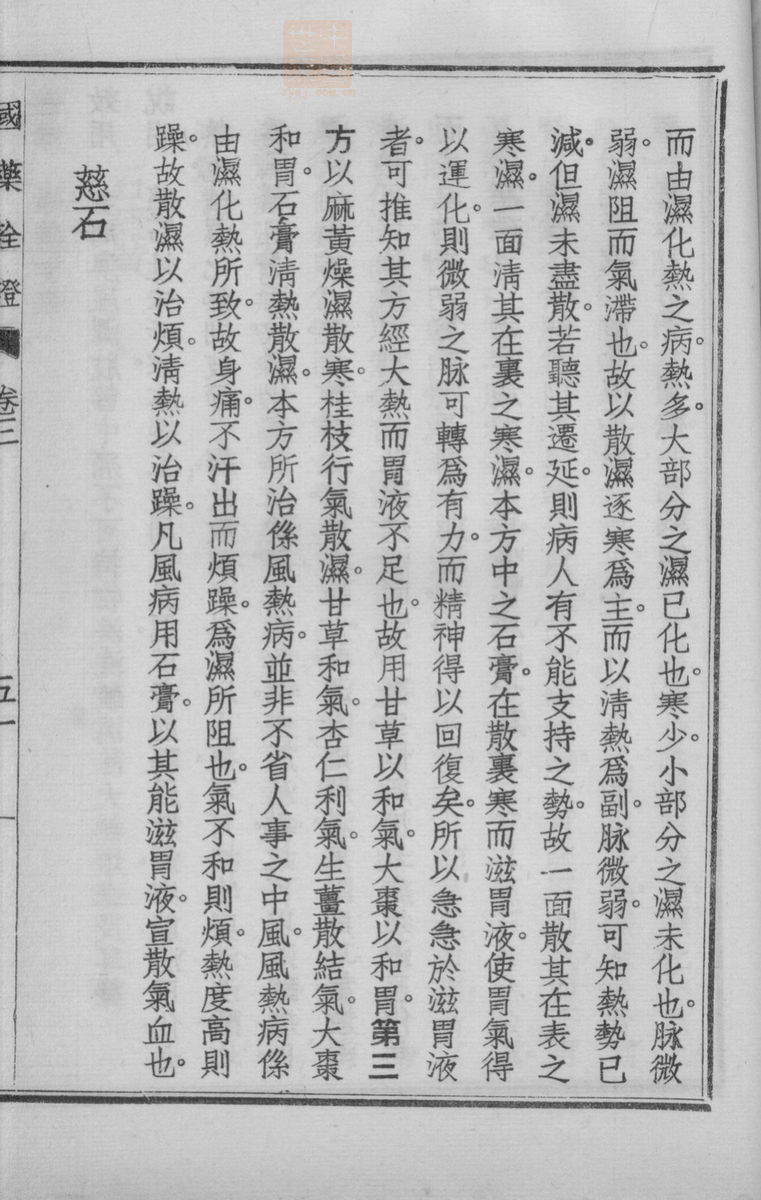 而由濕化熱之病。熱多。大部分之濕已化也。寒少。小部分之濕未化也。脉微
弱。濕阻而氣滯也。故以散濕逐寒爲主。而以清熱爲副。脉微弱。可知熱勢已
減。但濕未盡散。若聽其遷延。則病人有不能支持之勢。故一面散其在表之
寒濕。一面清其在裏之寒濕。本方中之石膏。在散裏寒而滋胃液。使胃氣得
以運化。則微弱之脉可轉爲有力。而精神得以回復矣。所以急急於滋胃液
者。可推知其方經大熱而胃液不足也。故用甘草以和氣。大棗以和胃。第三
方以麻黃燥濕散寒。桂枝行氣散濕。甘草和氣。杏仁利氣。生薑散結氣。大棗
和胃。石膏清熱散濕。本方所治係風熱病。並非不省人事之中風。風熱病係
由濕化熱所致。故身痛。不汗出而煩躁。爲濕所阻也。氣不和則煩。熱度高則
躁。故散濕以治煩。清熱以治躁。凡風病用石膏。以其能滋胃液。宣散氣血也。
慈石
國藥詮證 卷三 五一